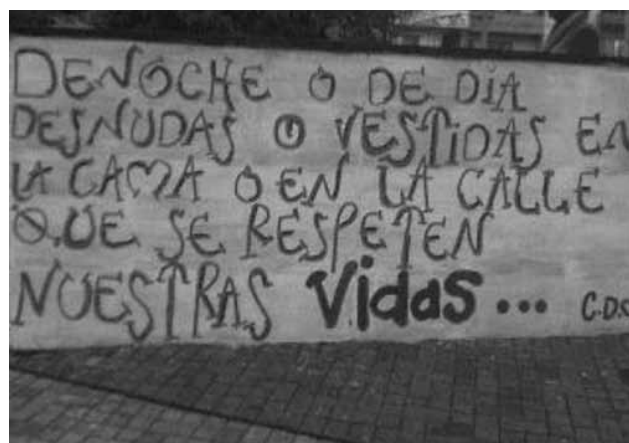 DE NOCHE O DE DÍA
DESNUDAS O VESTIDAS EN
LA CAMA O EN LA CALLE
QUE SE RESPETEN
NUESTRAS Vidas... C.D.